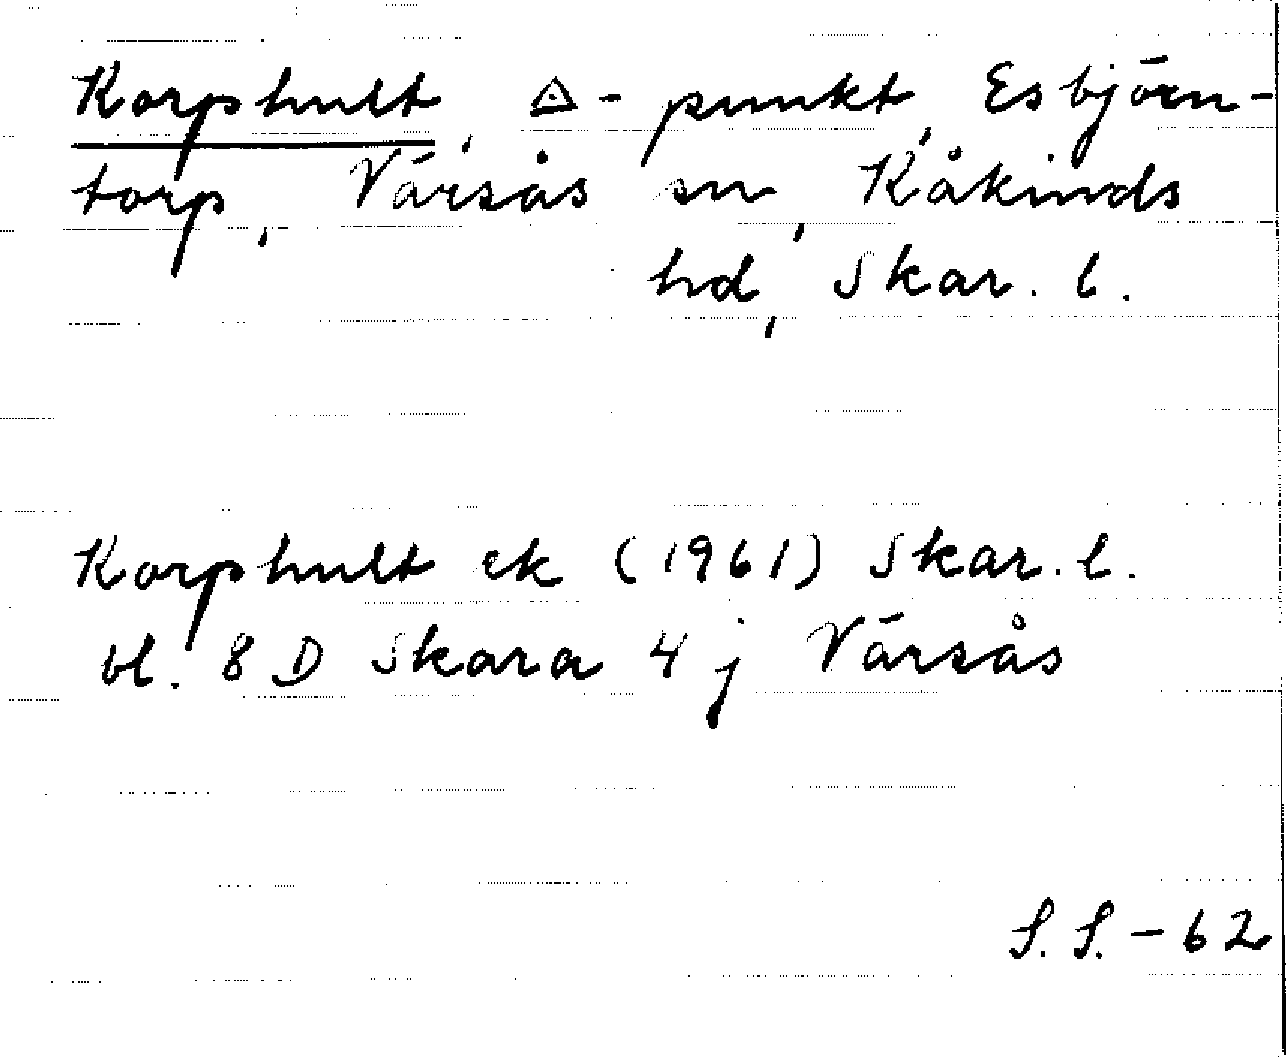 Korphult, △-punkt, Esbjörn-
torp, Värsås sn, Kåkinds
hd, Skar. l.
Korphult ek (1961) Skar. l.
bl. 8 D Skara 4 j Värsås
S. S. - 62